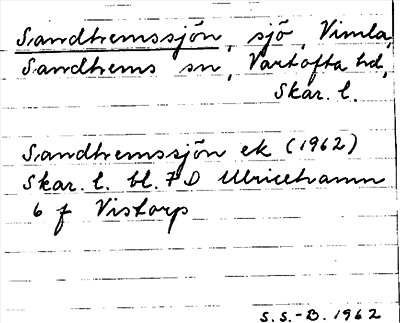 Sandhemssjön, sjö, Vimla,
Sandhems sn, Vartofta hd,
Skar. l.
Sandhemssjön ek (1962)
Skar. l. bl. 7 D Ulricehamn
6 f Vistorp
S.S.-B. 1962